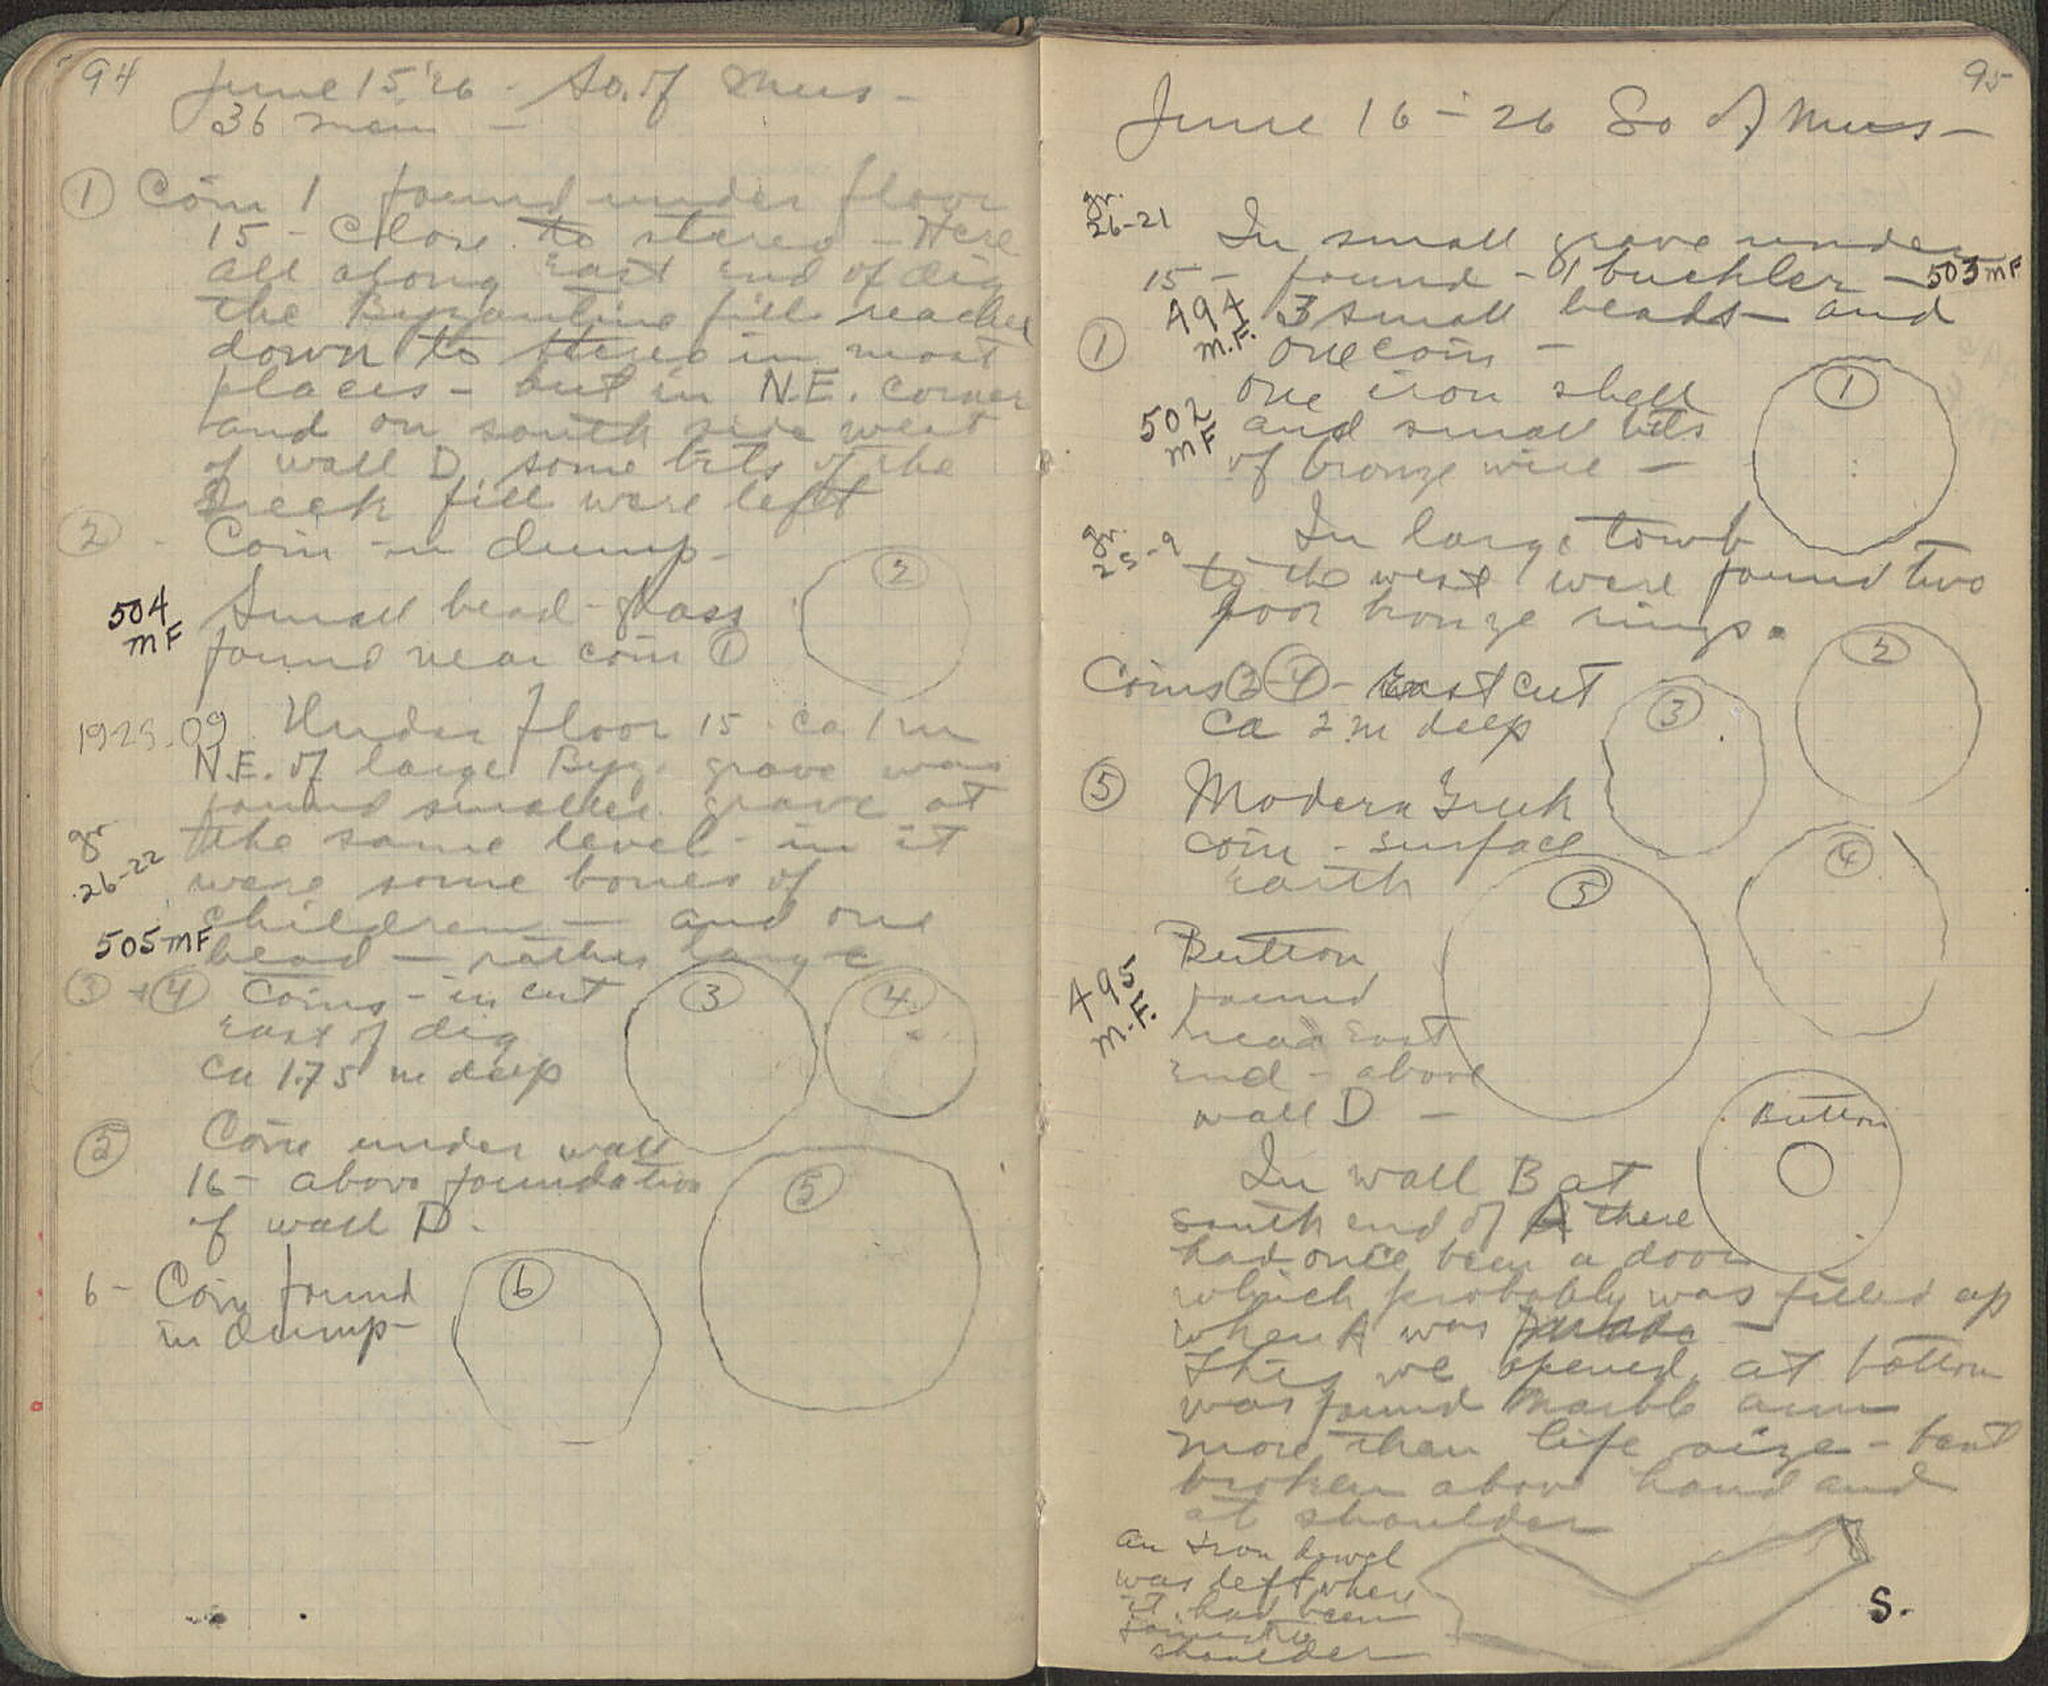 94
June 15, '26 - So. of Mus -
36 men -
① Coin 1 found under floor
15 - close to stereo - Here
all along East end of dig
the Byzantine fill reached
down to stereo in most
places - but in N.E. corner
and on south side west
of wall D some bits of the
Greek fill were left
② - Coin in dump -
②
504 MF
Small bead - glass
found near coin ①
1925.09 Under floor 15 - ca 1 m
N.E. of large Byz. grave was
found smaller grave at
gr 26-22
the same level - in it
were some bones of
children - and one
505 MF
bead - rather large
③ + ④ Coins - in cut
East of dig
ca 1.75 m deep
③
④
⑤ Coin under wall
16 - above foundation
of wall D.
⑤
6 - Coin found
in dump -
⑥
95
June 16 - 26 So of Mus -
gr. 26-21
In small grave under
15 - found - 1 buckler - 503 MF
494 M.F.
3 small beads - and
① one coin -
one iron shell
502 MF
and small bits
of bronze wire -
①
gr. 25-9
In large tomb
to the west were found two
poor bronze rings.
Coins ② - ④ - East cut
ca 2 m deep
②
③
④
⑤ Modern Greek
coin - surface
earth
⑤
495 M.F.
Button
found
near East
end - above
wall D -
Button
In wall B at
south end of A there
had once been a door
which probably was filled up
when A was made -
This we opened at bottom
was found marble arm
more than life size - bent
broken above hand and
at shoulder
An iron dowel
was left where
it had been
shoulder
S.